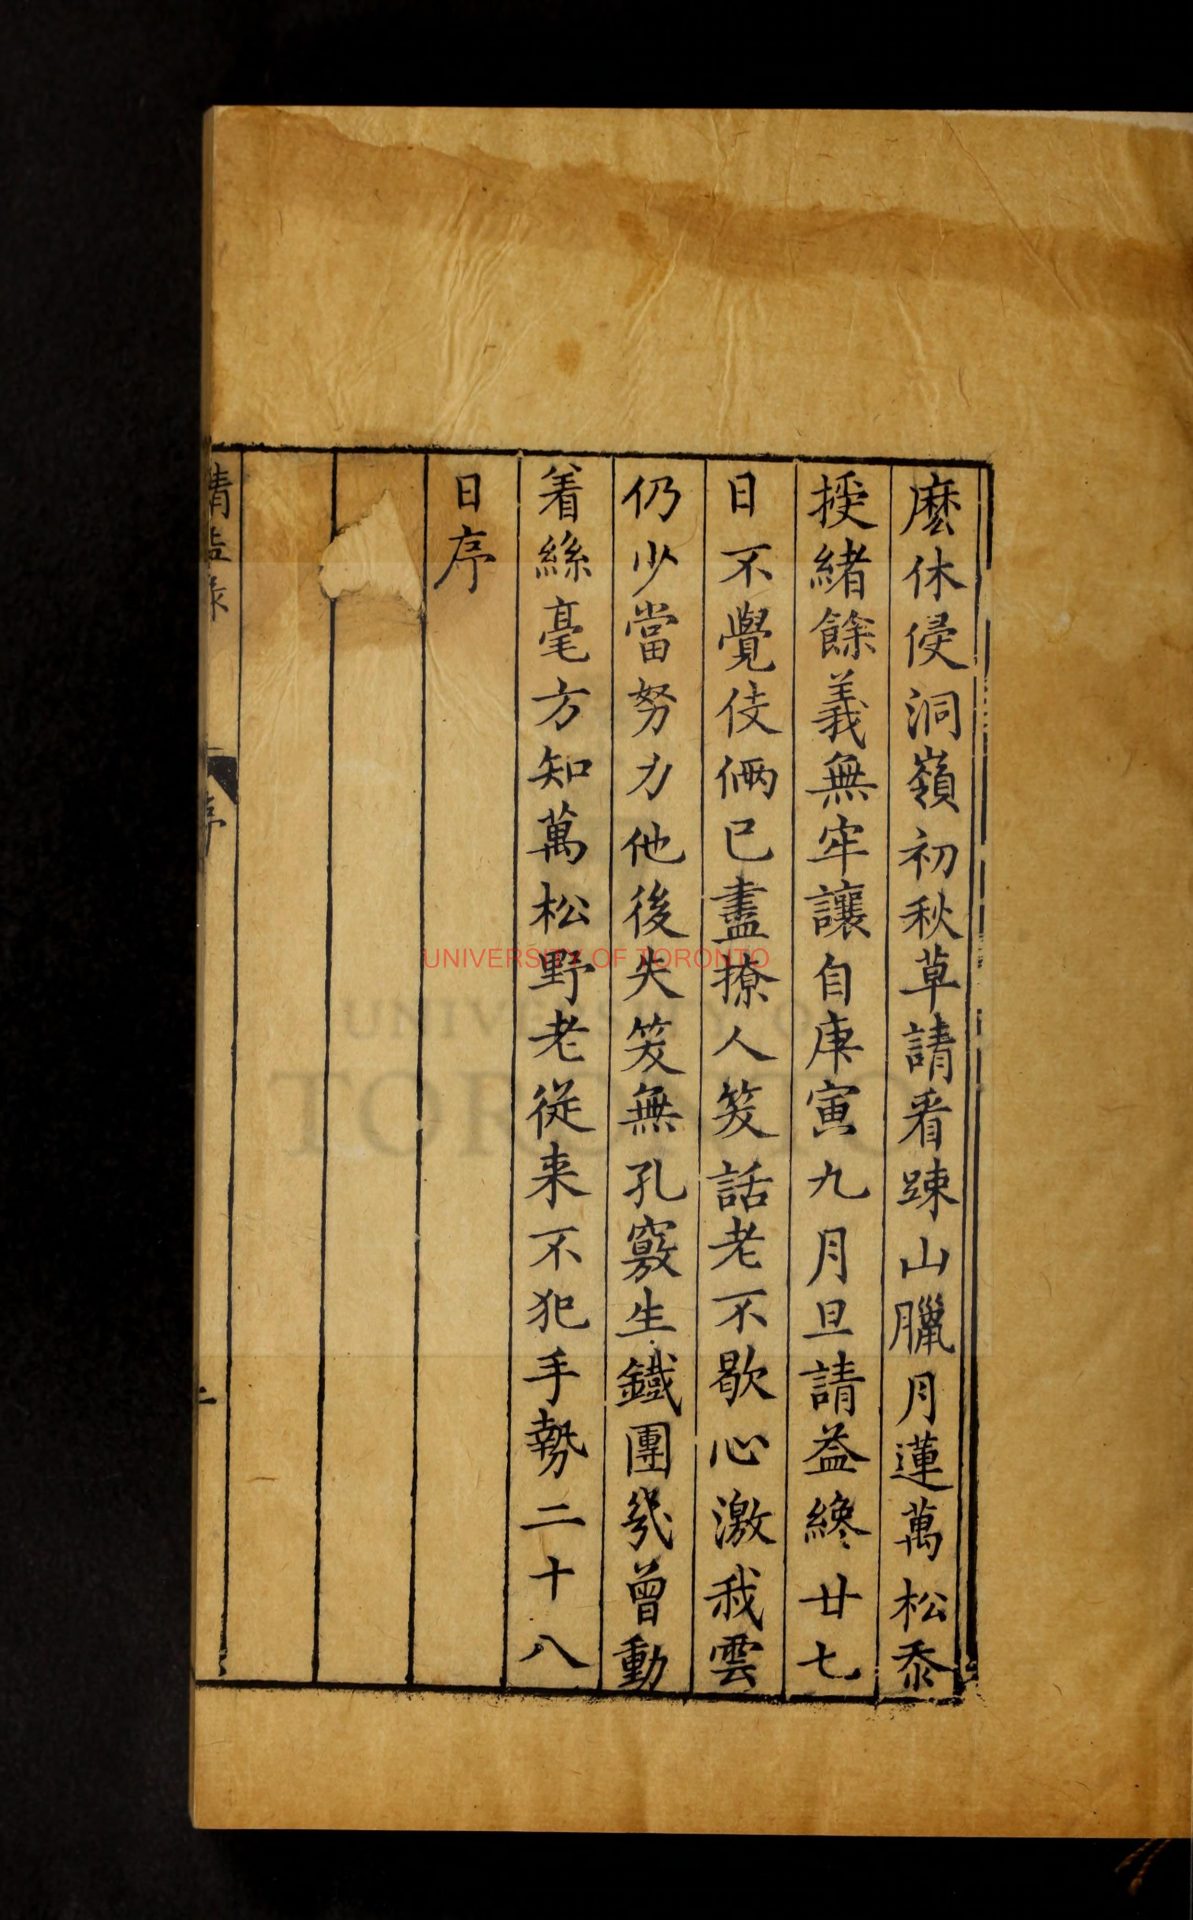 麽休侵洞嶺初秋草請看踈山臘月蓮萬松忝
授緒餘義無牢讓自庚寅九月旦請益纔廿七
日不覺伎倆已盡撩人笑話老不歇心激我雲
仍少當努力他後失笑無孔竅生鐵團幾曾動
着絲毫方知萬松野老從来不犯手勢二十八
日序
請益录
序
UNIVERSITY OF TORONTO
UNIVERSITY OF
TORONTO